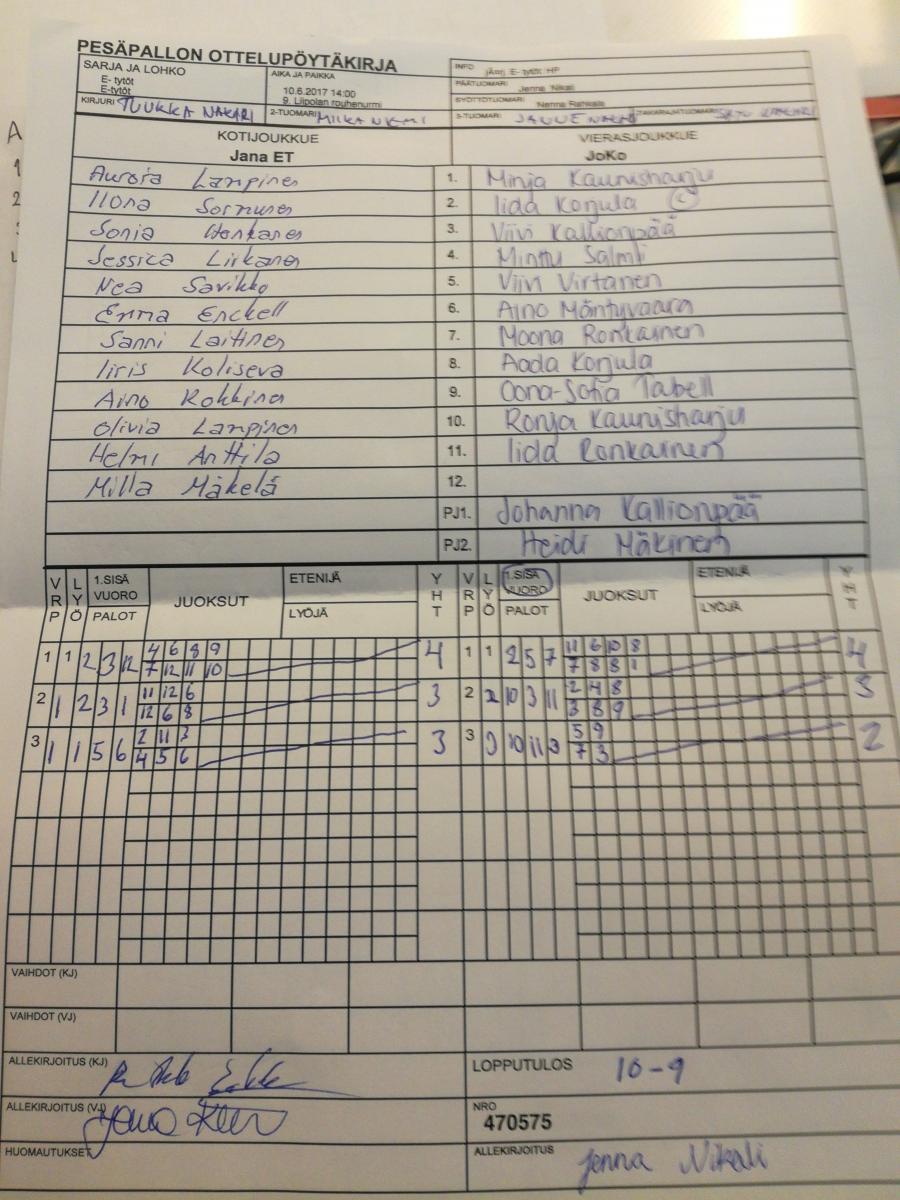 PESÄPALLON OTTELUPÖYTÄKIRJA
SARJA JA LOHKO
E- tytöt
E-tytöt
AIKA JA PAIKKA
10.6.2017 14:00
9. Liipolan rouhenurmi
INFO jÄnj E- tytöt HP
PÄÄTUOMARI Jenna Nikali
SYÖTTÖTUOMARI Nenna
KIRJURI TUUKKA NAKARI
2-TUOMARI
3-TUOMARI: JANNE
TAKARAJATUOMARI
KOTIJOUKKUE
Jana ET
VIERASJOUKKUE
JoKo
Aurora Lampinen 1. Minja Kaunisharju
Ilona Sormunen 2. Iida Korjula (C)
Sonja Honkanen 3. Viivi Kallionpää
Jessica Liikanen 4. Minttu Salmi
Nea Savikko 5. Viivi Virtanen
Emma Enckell 6. Aino Mäntyvaara
Sanni Laitinen 7. Moona Ronkainen
Iiris Koliseva 8. Aada Korjula
Aino Rokkina 9. Oona-Sofia Tabell
Olivia Lampinen 10. Ronja Kaunisharju
Helmi Anttila 11. Iida Ronkainen
Milla Mäkelä 12.
PJ1. Johanna Kallionpää
PJ2. Heidi Mäkinen
VRP LYÖ 1.SISÄ VUORO PALOT JUOKSUT ETENIJÄ LYÖJÄ YHT VRP LYÖ 1.SISÄ VUORO PALOT JUOKSUT ETENIJÄ LYÖJÄ YHT
1 1 2 3 12 4 6 8 9 4 1 1 2 5 7 11 6 10 8 4
7 12 11 10 7 8 8 1
2 1 2 3 1 11 12 6 3 2 2 10 3 11 2 4 8 3
12 6 8 3 8 9
3 1 1 5 6 2 11 3 3 3 9 10 11 9 5 9 2
4 5 6 7 3
VAIHDOT (KJ)
VAIHDOT (VJ)
ALLEKIRJOITUS (KJ)
LOPPUTULOS 10-9
ALLEKIRJOITUS (VJ)
NRO
470575
HUOMAUTUKSET
ALLEKIRJOITUS Jenna Nikali